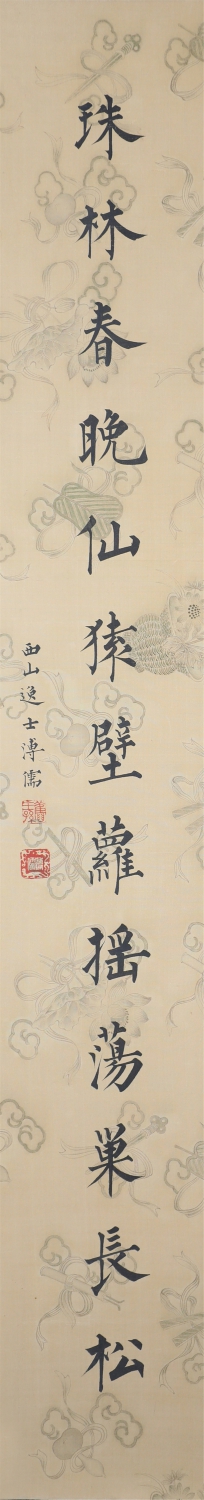 珠林春晚仙猿壁蘿搖蕩巢長松
西山逸士溥儒